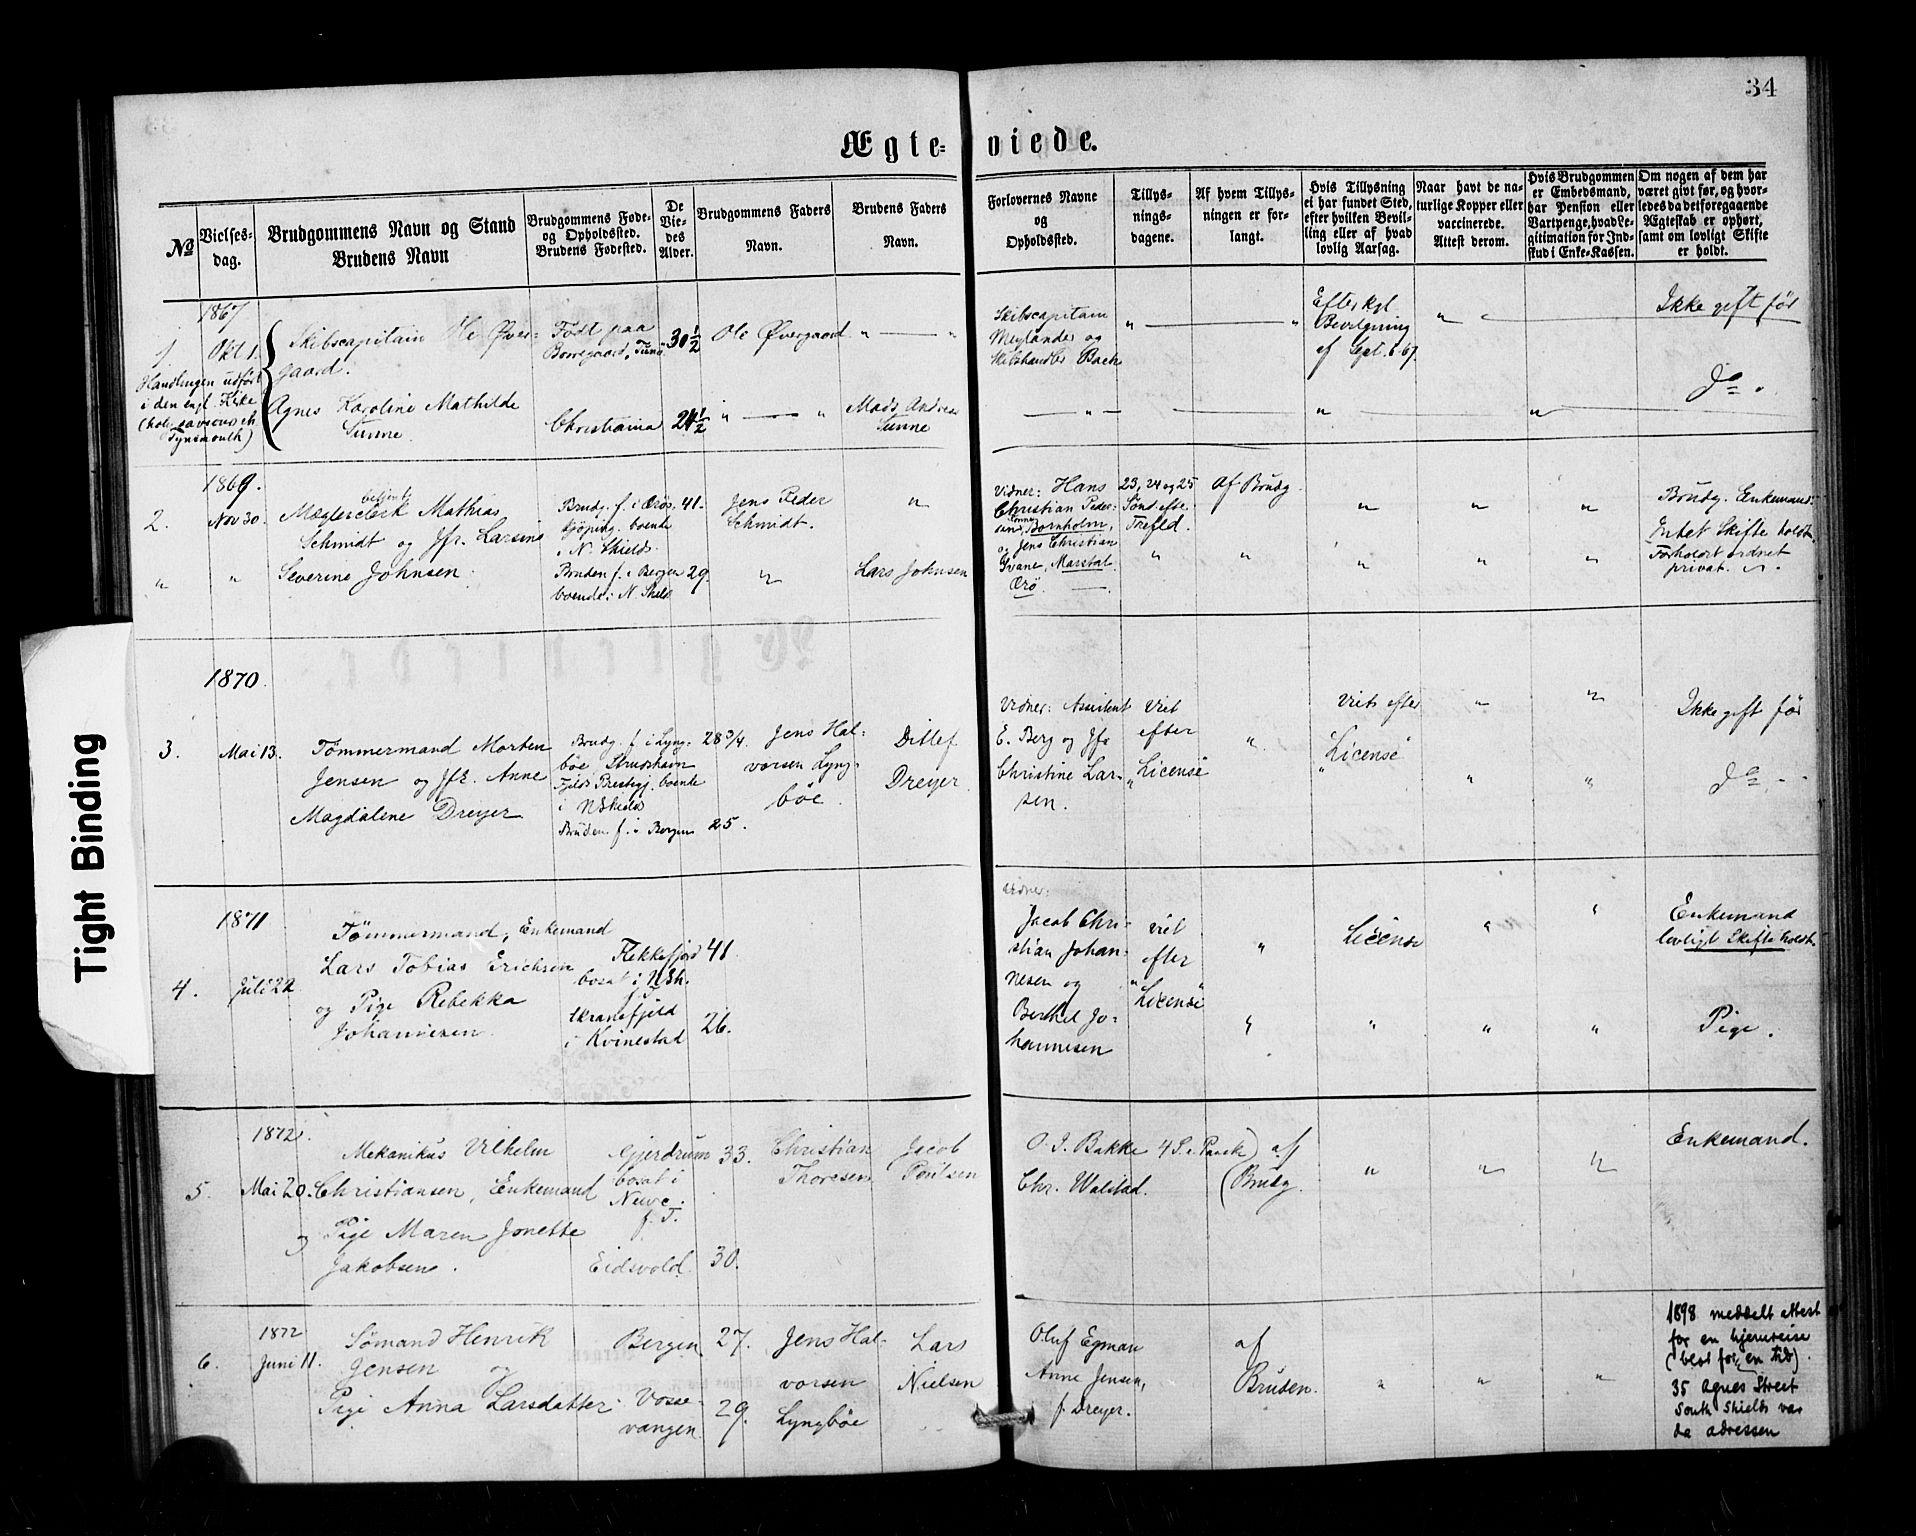 34
Ægteviede.
No
Vielsesdag.
Brudgommens Navn og Stand
Brudens Navn
Brudgommens Føde-
og Opholdssted.
Brudens Fødested.
De
Vie-
des
Alder.
Brudgommens Faders
Navn.
Brudens Faders
Navn.
Forlovernes Navne
og
Opholdssted.
Tillys-
nings-
dagene.
Af hvem Tillys-
ningen er for-
langt.
Hvis Tillysning
ei har fundet Sted,
efter hvilken Bevil-
ling eller af hvad
lovlig Aarsag.
Naar havt de na-
turlige Kopper eller
vaccinerede.
Attest derom.
Hvis Brudgommen
er Embedsmand,
har Pension eller
Vartpenge, hvad Le-
gitimation for Ind-
skud i Enke-Kassen.
Om nogen af dem har
været givt før, og hvor-
ledes da det foregaaende
Ægteskab er ophørt,
samt om lovligt Skifte
er holdt.
1867
1. Okt 1.
Handlingen udført
i den engl. Kirke
(holy saviours ch
Tynemouth)
Skibscapitain Ole Øver-
gaard.
Agnes Karoline Mathilde
Sunne.
Født paa
Borregaard, Tunø
Christiania
30 1/2
24 1/2
Ole Øvergaard
Mads Andreas
Sunne
Skibscapitain
Meylander og
Skibshandler Bach
Efter kgl.
Bevilgning
af Sept. 6. 67.
Ikke gift før
Do.
1869.
2. Nov 30.
betjent
Mæglerclerk Mathias
Schmidt og Jfr. Larsine
Severine Johnsen.
Brudg. f. i Ærøs-
kjöping. boende
i N. Shields.
Bruden f. i Bergen
boende i N. Shields
41.
29.
Jens Peder
Schmidt.
Lars Johnsen
Vidner: Hans
Christian Peder-
sen, Rønne, Bornholm,
og Jens Christian
Svane, Marstal
Ærö.
23, 24 og 25
Sønd. efter
Trefold.
Af Brudg.
Brudg. Enkemand:
Intet Skifte holdt.
Forholdet ordnet
privat.
1870.
3. Mai 13.
Tømmermand Morten
Jensen og Jfr. Anne
Magdalene Dreyer
Brudg. f. i Lyng-
böe Strudshavn
Fjelds Prestegj. boende
i N Shields
Bruden f. i Bergen
28 3/4.
25.
Jens Hal-
vorsen Lyng-
böe.
Ditlef
Dreyer.
Vidner: Assistent
E. Berg og Jfr
Christine Lar-
sen.
Viet
efter
"License"
Viets efter
"License"
Ikke gift før
Do.
1871
4. Juli 22
Tømmermand, Enkemand
Lars Tobias Erichsen
og Pige Rebekka
Johannesen.
Flekkefjord
bosat i N Sh.
Kvinestad
41
26.
Vidner:
Jacob Chri-
stian Johan-
nesen og
Berthel Jo-
hannesen
viet
efter
"License"
License
Enkemand
lovligt Skifte holdt.
Pige.
1872.
5. Mai 20.
Mekanikus Vilhelm
Christiansen, Enkemand
og Pige Maren Jonette
Jakobsen.
Gjerdrum
bosat i
Newc.
f. T.
Eidsvold.
33.
30.
Christian
Thoresen
Jacob
Poulsen
O. J. Bakke
Chr. Walstad.
af
Brudg.
Enkemand.
1872
6. Juni 11.
Sömand Henrik
Jensen og
Pige Anna Larsdatter
Bergen
Vosse-
vangen
27.
29.
Jens Hal-
vorsen
Lyngböe
Lars
Nielsen
Oluf Egman
Anne Jensen,
f. Dreyer.
af
Bruden.
1898 meddelt attest
for en hjemreise
(blot for en tid).
35 Agnes Street
South Shields var
da adressen
Tight Binding